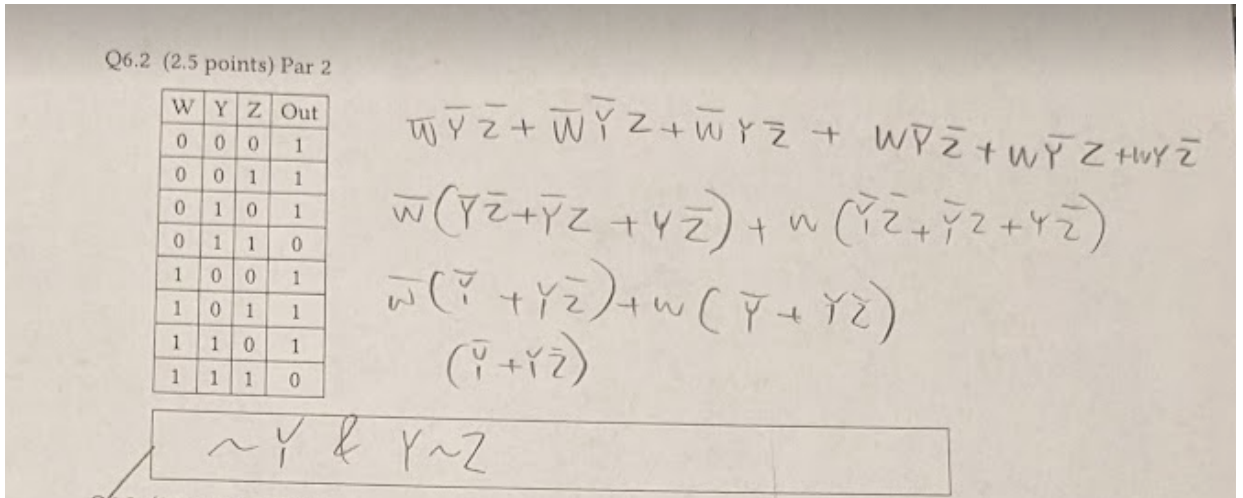 Q6.2 (2.5 points) Par 2
W Y Z Out
0 0 0 1
0 0 1 1
0 1 0 1
0 1 1 0
1 0 0 1
1 0 1 1
1 1 0 1
1 1 1 0
W̅ Y̅ Z̅ + W̅ Y̅ Z + W̅ Y Z̅ + W Y̅ Z̅ + W Y̅ Z + W Y Z̅
W̅ (Y̅ Z̅ + Y̅ Z + Y Z̅) + W (Y̅ Z̅ + Y̅ Z + Y Z̅)
W̅ (Y̅ + Y Z̅) + W (Y̅ + Y Z̅)
(Y̅ + Y Z̅)
~Y & Y~Z